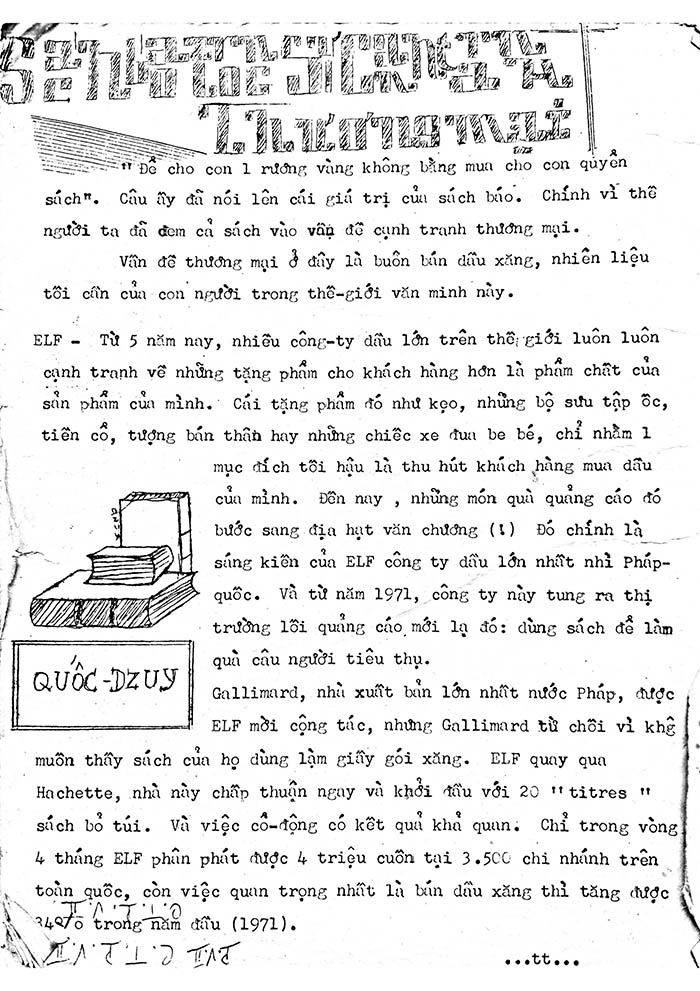 Thương mại
" Để cho con 1 rương vàng không bằng mua cho con quyển
sách". Câu ấy đã nói lên cái giá trị của sách báo. Chính vì thế
người ta đã đem cả sách vào vấn đề cạnh tranh thương mại.
Vấn đề thương mại ở đây là buôn bán dầu xăng, nhiên liệu
tối cần của con người trong thế-giới văn minh này.
ELF - Từ 5 năm nay, nhiều công-ty dầu lớn trên thế giới luôn luôn
cạnh tranh về những tặng phẩm cho khách hàng hơn là phẩm chất của
sản phẩm của mình. Cái tặng phẩm đó như kẹo, những bộ sưu tập ốc,
tiền cổ, tượng bán thân hay những chiếc xe đua be bé, chỉ nhằm 1
mục đích tối hậu là thu hút khách hàng mua dầu
của mình. Đến nay , những món quà quảng cáo đó
bước sang địa hạt văn chương (!) Đó chính là
sáng kiến của ELF công ty dầu lớn nhất nhì Pháp-
quốc. Và từ năm 1971, công ty này tung ra thị
trường lối quảng cáo mới lạ đó: dùng sách để làm
quà câu người tiêu thụ.
QUỐC-DZUY
Gallimard, nhà xuất bản lớn nhất nước Pháp, được
ELF mời cộng tác, nhưng Gallimard từ chối vì khg
muốn thấy sách của họ dùng làm giấy gói xăng. ELF quay qua
Hachette, nhà này chấp thuận ngay và khởi đầu với 20 "titres "
sách bỏ túi. Và việc cổ-động có kết quả khả quan. Chỉ trong vòng
4 tháng ELF phân phát được 4 triệu cuốn tại 3.500 chi nhánh trên
toàn quốc, còn việc quan trọng nhất là bán dầu xăng thì tăng được
34% trong năm đầu (1971).
...tt...